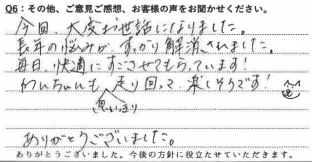 Q6：その他、ご意見ご感想、お客様の声をお聞かせください。
今回、大変お世話になりました。
長年の悩みが、すっかり解消されました。
毎日、快適にすごさせてもらっています!
わんちゃんも、思いっきり走り回って楽しそうです!
ありがとうございました。
ありがとうございました。今後の方針に役立たせていただきます。